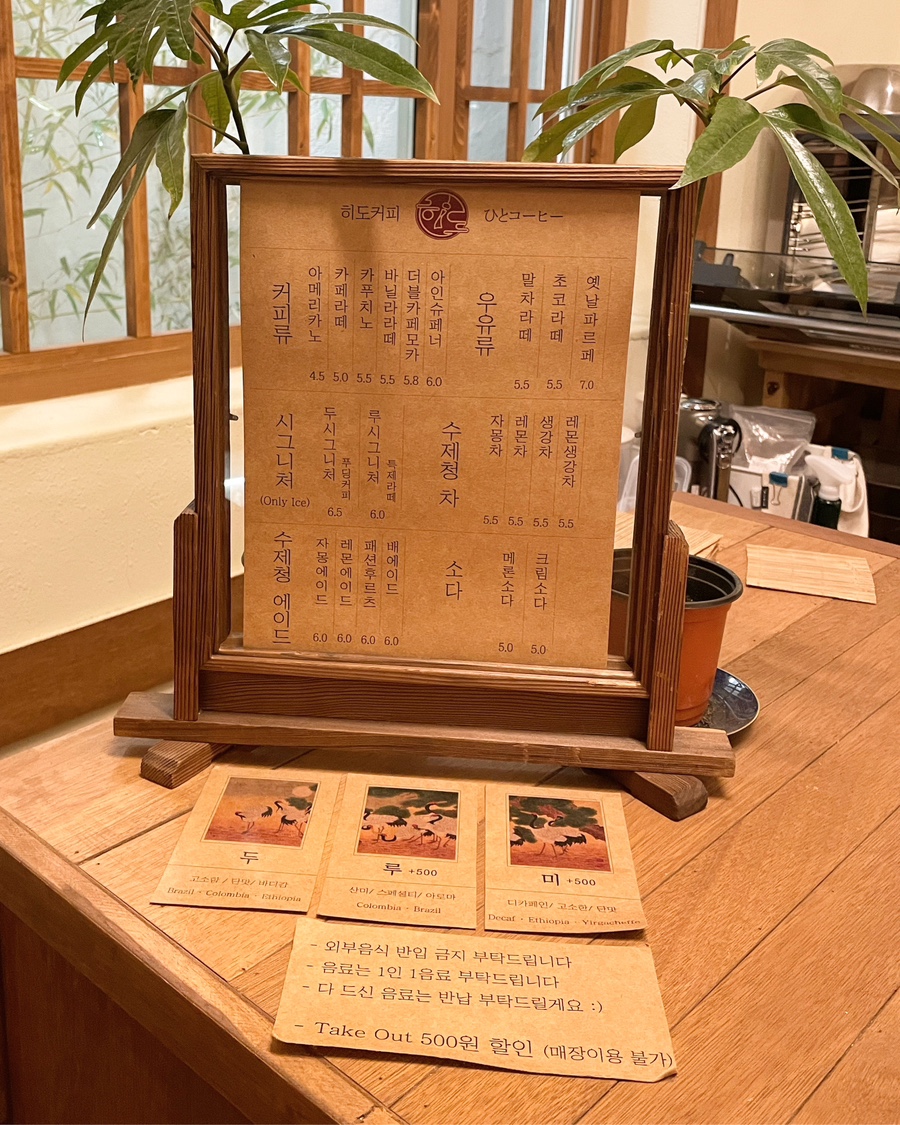 히도커피 히도 ひとコーヒー
커피류
아메리카노 4.5
카페라떼 5.0
카푸치노 5.5
바닐라라떼 5.5
더블카페모카 5.8
아인슈페너 6.0
우유류
말차라떼 5.5
초코라떼 5.5
옛날파르페 7.0
시그니처
(Only Ice)
두시그니처 푸딩커피 6.5
루시그니처 특제라떼 6.0
수제청 차
자몽차 5.5
레몬차 5.5
생강차 5.5
레몬생강차 5.5
수제청 에이드
자몽에이드 6.0
레몬에이드 6.0
패션후르츠 6.0
배에이드 6.0
소다
메론소다 5.0
크림소다 5.0
두
고소함/ 단맛/ 바디감
Brazil · Colombia · Ethiopia
루 +500
산미/ 스페셜티/ 아로마
Colombia · Brazil
미 +500
디카페인/ 고소한/ 단맛
Decaf · Ethiopia · Virgacheffe
- 외부음식 반입 금지 부탁드립니다
- 음료는 1인 1음료 부탁드립니다
- 다 드신 음료는 반납 부탁드릴게요 :)
- Take Out 500원 할인 (매장이용 불가)